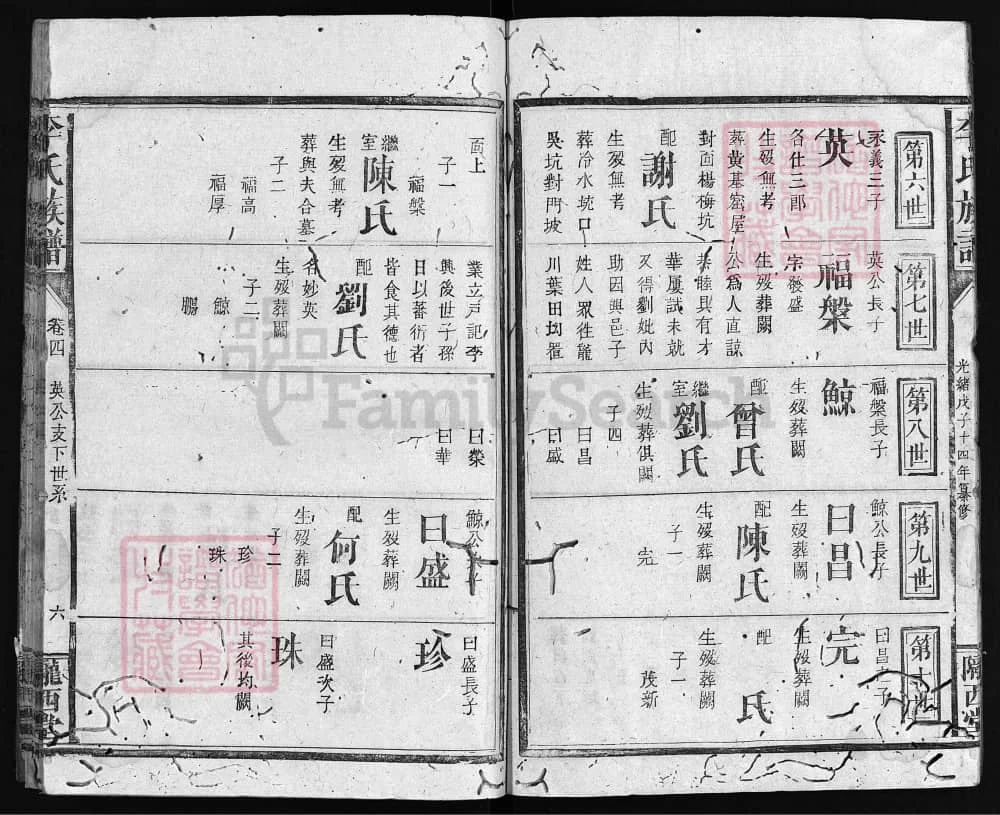 李氏族譜
光緒戊子十四年纂修
隴西堂
第六世
永義三子
英
名仕三郎
生歿無考
葬黄基窰屋
對面楊梅坑
配
謝氏
生歿無考
葬冷水坑口
吳坑對門坡
第七世
英公長子
福槃
宗發盛
生歿葬闕
公為人直諒
恭睦具有才
華屢試未就
又得劉妣內
助因興邑子
姓人眾往龍
川葉田均置
第八世
福槃長子
鯨
生歿葬闕
配
曾氏
繼室
劉氏
生歿葬俱闕
子四
曰昌
曰盛
第九世
鯨公長子
曰昌
生歿葬闕
配
陳氏
生歿葬闕
子一
完
第十世
曰昌之子
完
生歿葬闕
配
氏
生歿葬闕
子一
茂新
面上
子一
福槃
繼室
陳氏
生歿無考
葬與夫合墓
子二
福高
福厚
業立戶記李
興後世子孫
日以蕃衍者
皆食其德也
配
劉氏
名妙英
生歿葬闕
子二
鯨
鵬
曰榮
曰華
曰盛
生歿葬闕
配
何氏
生歿葬闕
子二
珍
珠
曰盛長子
珍
曰盛次子
珠
其後均闕
李氏族譜
卷四
英公支下世系
六
隴西堂
FamilySearch